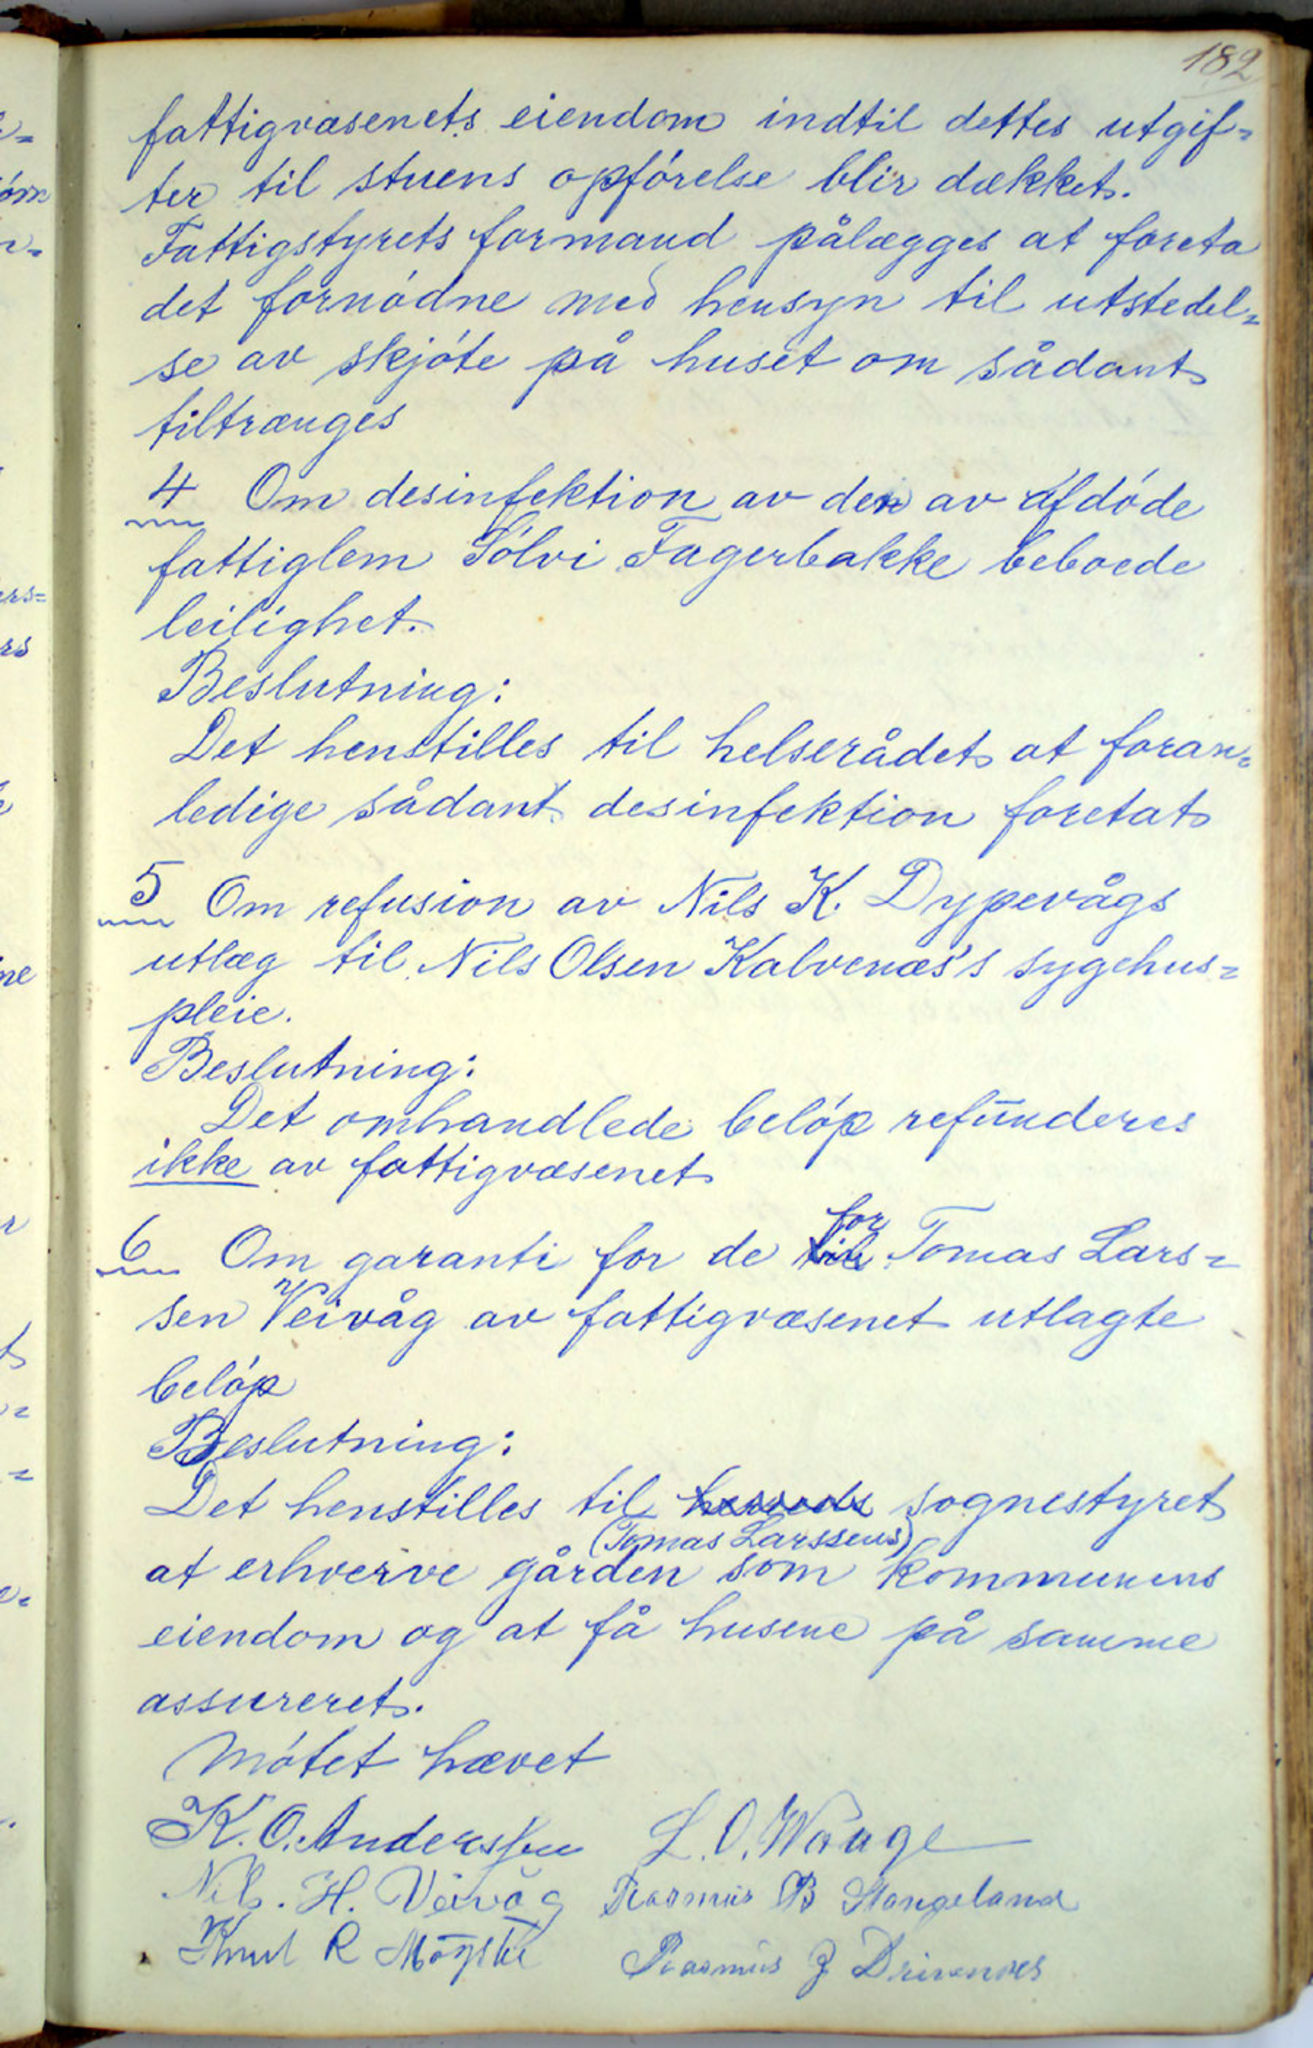 182
fattigvæsenets eiendom indtil dettes utgif=
ter til stuens opförelse blir dækket.
Fattigstyrets formand pålægges at foreta
det fornödne med hensyn til utstedel=
se av skjöte på huset om sådant
tiltrænges
4 Om desinfektion av den av afdöde
fattiglem Sölvi Fagerbakke beboede
leilighet.
Beslutning:
Det henstilles til helserådet at foran=
ledige sådant desinfektion foretat
5 Om refusion av Nils K. Dypevågs
utlæg til Nils Olsen Kalvenæs's sygehus=
pleie.
Beslutning:
Det omhandlede belöp refunderes
ikke av fattigvæsenet
for
6 Om garanti for de til Tomas Lars=
sen Veivåg av fattigvæsenet utlagte
belöp
Beslutning:
Det henstilles til herreds sognestyret
(Tomas Larssens)
at erhverve gården som kommunens
eiendom og at få husene på samme
assureret.
Mötet hævet
K. O. Anderssen L. O. Waage
Nils. H. Veivåg Rasmus B Stangeland
Knut R Mögster Rasmus J Drivenes